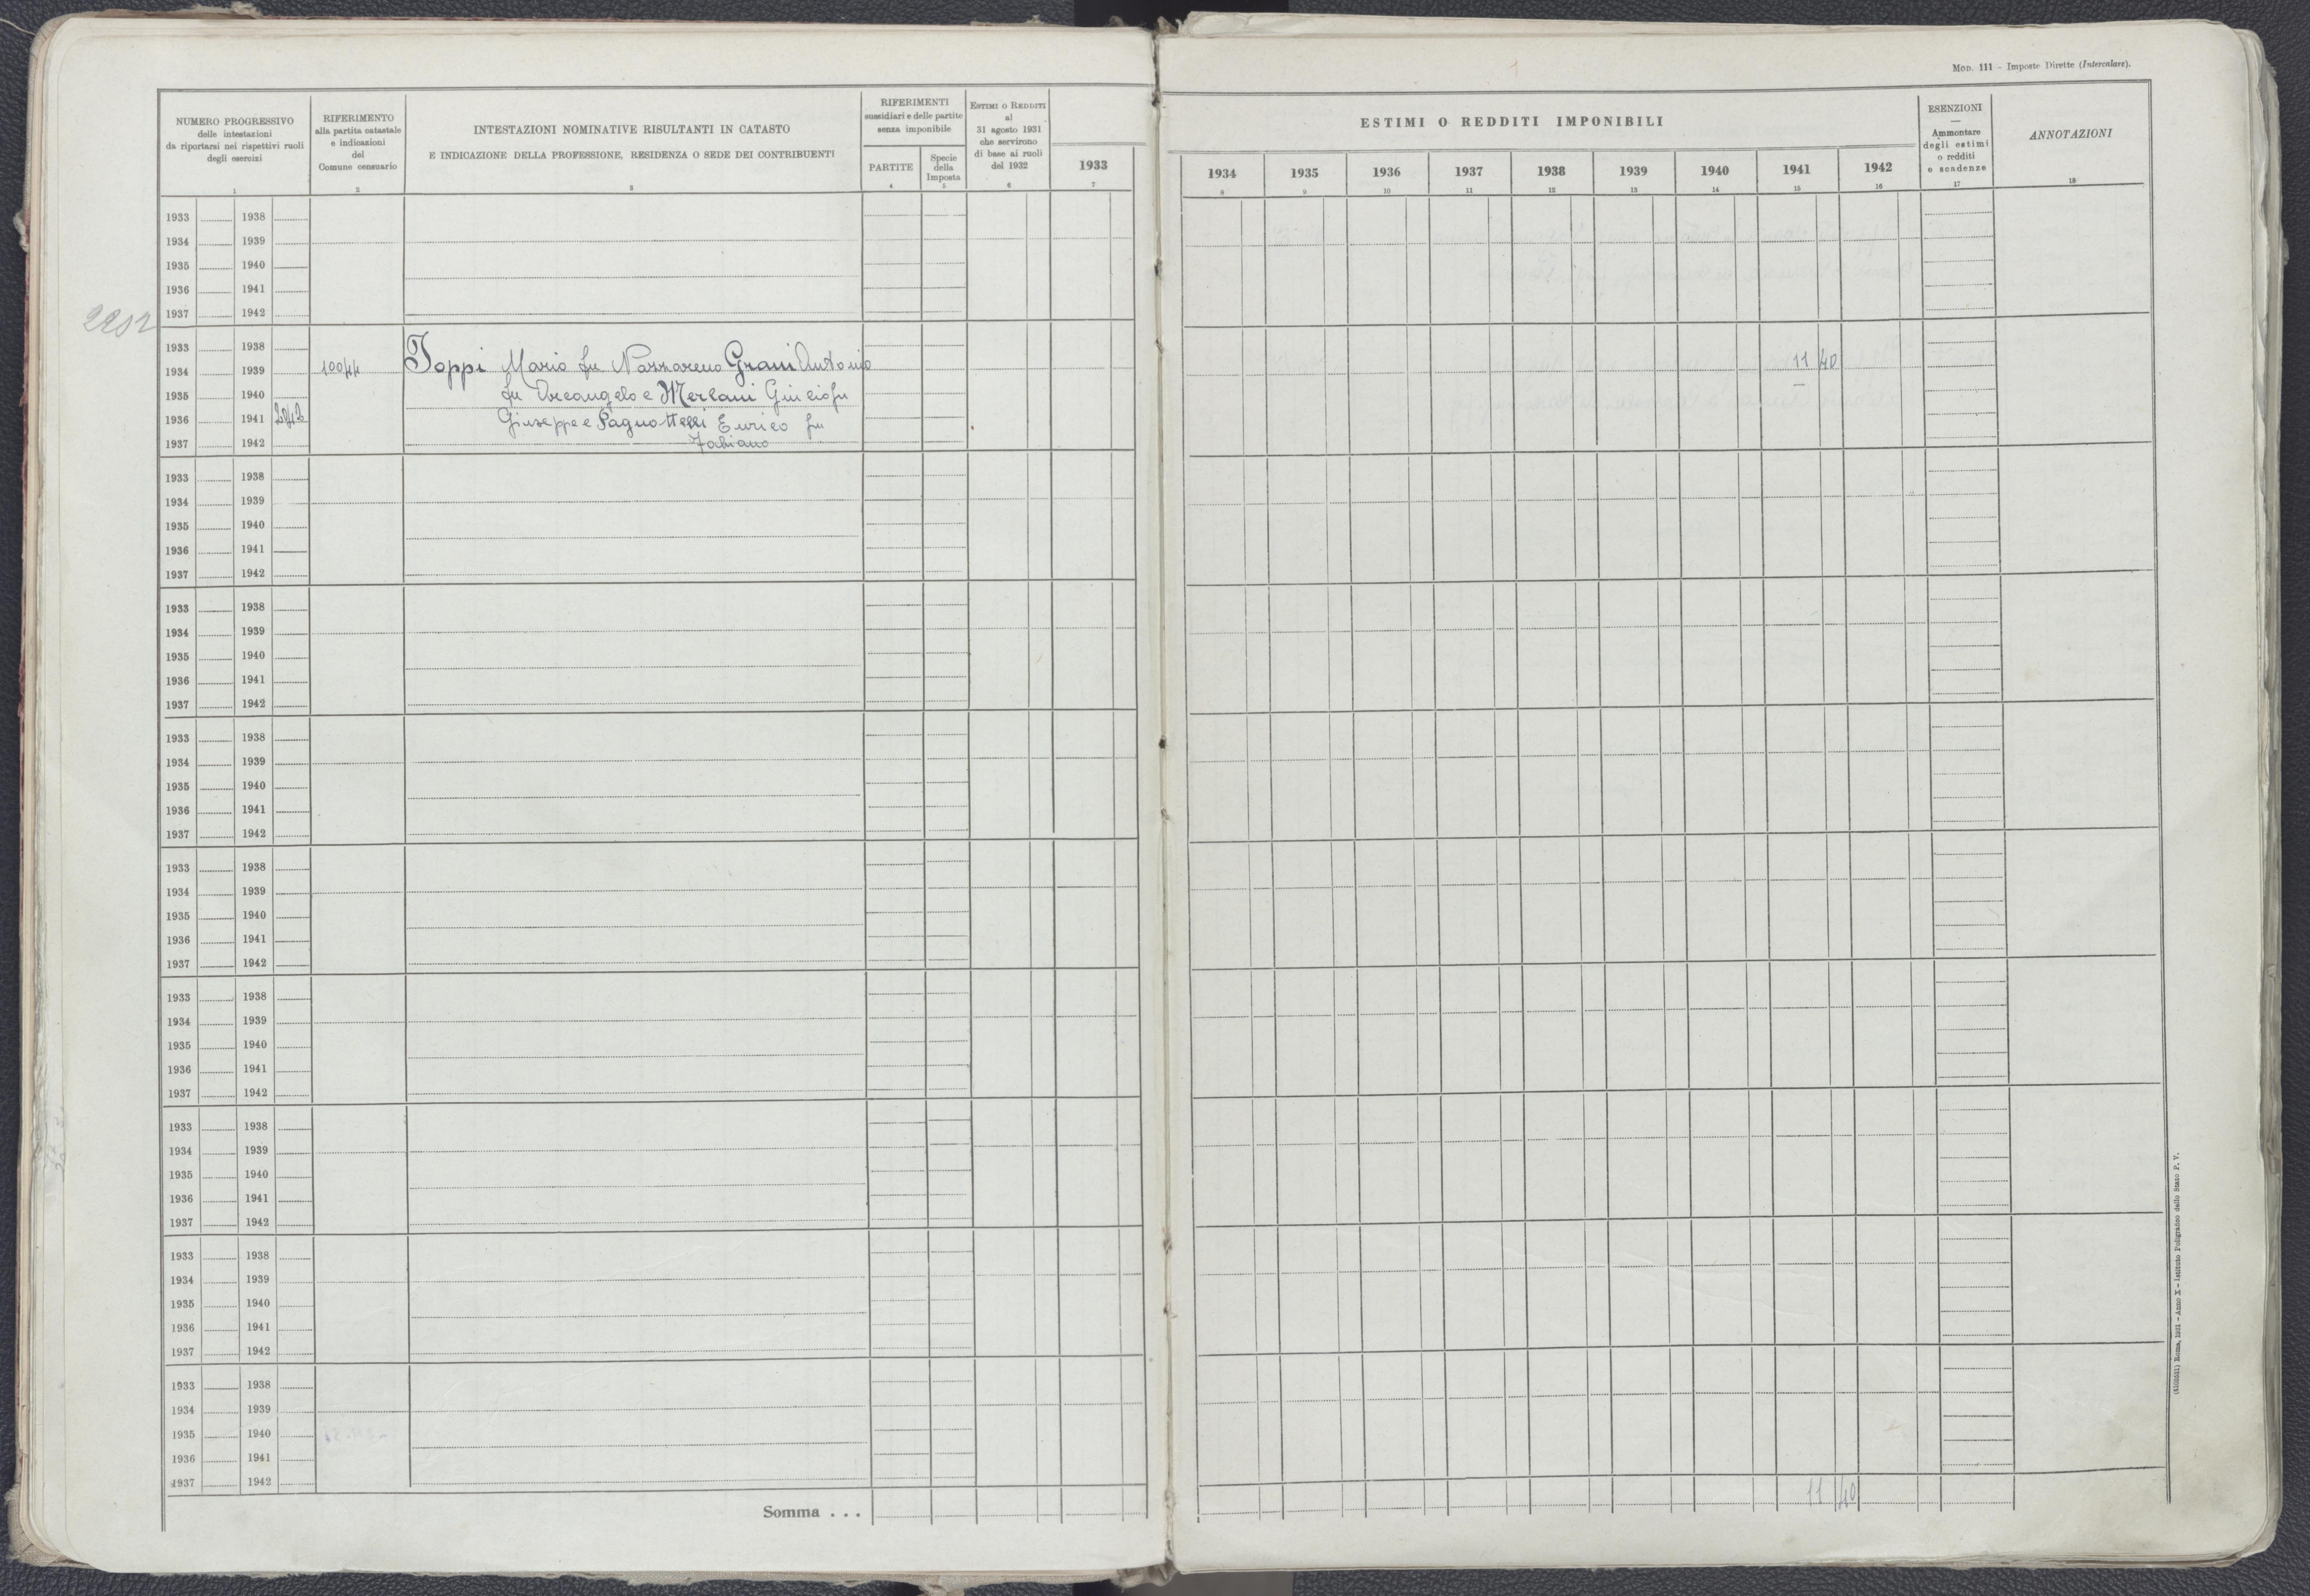 Mod. 111 – Imposte Dirette (Intercalare).
NUMERO PROGRESSIVO
delle intestazioni
da riportarsi nei rispettivi ruoli
degli esercizi
1
RIFERIMENTO
alla partita catastale
e indicazioni
del
Comune censuario
2
INTESTAZIONI NOMINATIVE RISULTANTI IN CATASTO
E INDICAZIONE DELLA PROFESSIONE, RESIDENZA O SEDE DEI CONTRIBUENTI
3
RIFERIMENTI
sussidiari e delle partite
senza imponibile
PARTITE
4
Specie
della
Imposta
5
Estimi o Redditi
al
31 agosto 1931
che servirono
di base ai ruoli
del 1932
6
1933
7
ESTIMI O REDDITI IMPONIBILI
1934 1935 1936 1937 1938 1939 1940 1941 1942
8 9 10 11 12 13 14 15 16
ESENZIONI
—
Ammontare
degli estimi
o redditi
e scadenze
17
ANNOTAZIONI
18
1933 1938
1934 1939
1935 1940
1936 1941
1937 1942
1933 1938
1934 1939 10044 Toppi Mario fu Nazzareno Grani Antonio 11 40
1935 1940 fu Arcangelo e Merlani Gini
1936 1941 Giuseppe e Pagnottelli Enrico fu
1937 1942 Fabiano
1933 1938
1934 1939
1935 1940
1936 1941
1937 1942
1933 1938
1934 1939
1935 1940
1936 1941
1937 1942
1933 1938
1934 1939
1935 1940
1936 1941
1937 1942
1933 1938
1934 1939
1935 1940
1936 1941
1937 1942
1933 1938
1934 1939
1935 1940
1936 1941
1937 1942
1933 1938
1934 1939
1935 1940
1936 1941
1937 1942
1933 1938
1934 1939
1935 1940
1936 1941
1937 1942
1933 1938
1934 1939
1935 1940
1936 1941
1937 1942
Somma . . . 11 40
Roma, 1931 – Anno X – Istituto Poligrafico dello Stato P. V.